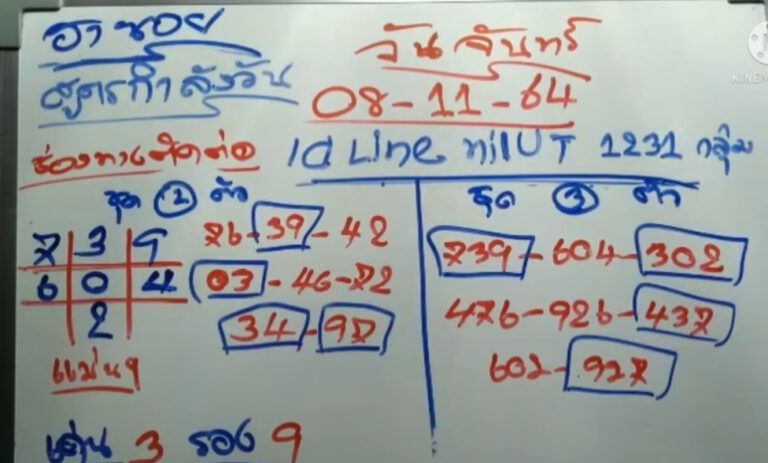 ฮานอย
สูตรกำลังวัน
วันจันทร์
08-11-64
ช่องทางติดต่อ Id Line
1231 กลุ่ม
ชุด 2 ตัว
7 3 9
6 0 4
2
76-39-42
03-46-72
34-97
แม่นๆ
เด่น 3 รอง 9
ชุด 3 ตัว
739-604-302
476-926-437
602-927
KINE